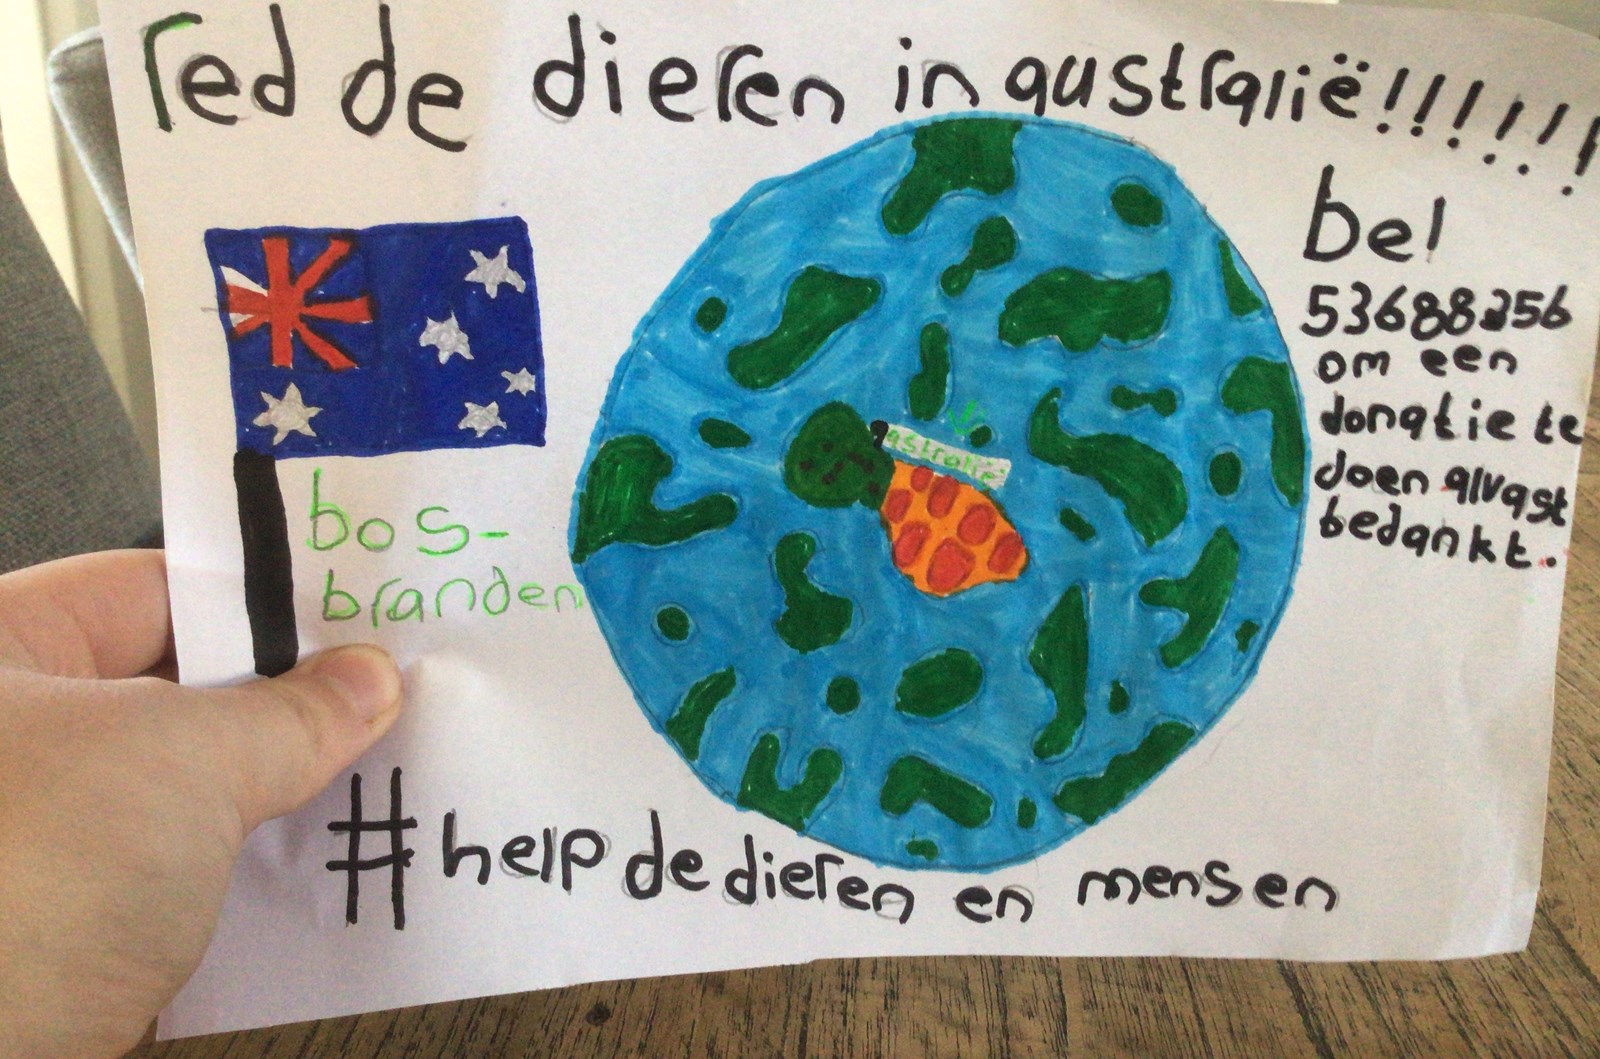 red de dieren in australië!!!!!!
bel
53688256
om een
donatie te
doen alvast
bedankt.
australië
bos-
branden
#help de dieren en mensen